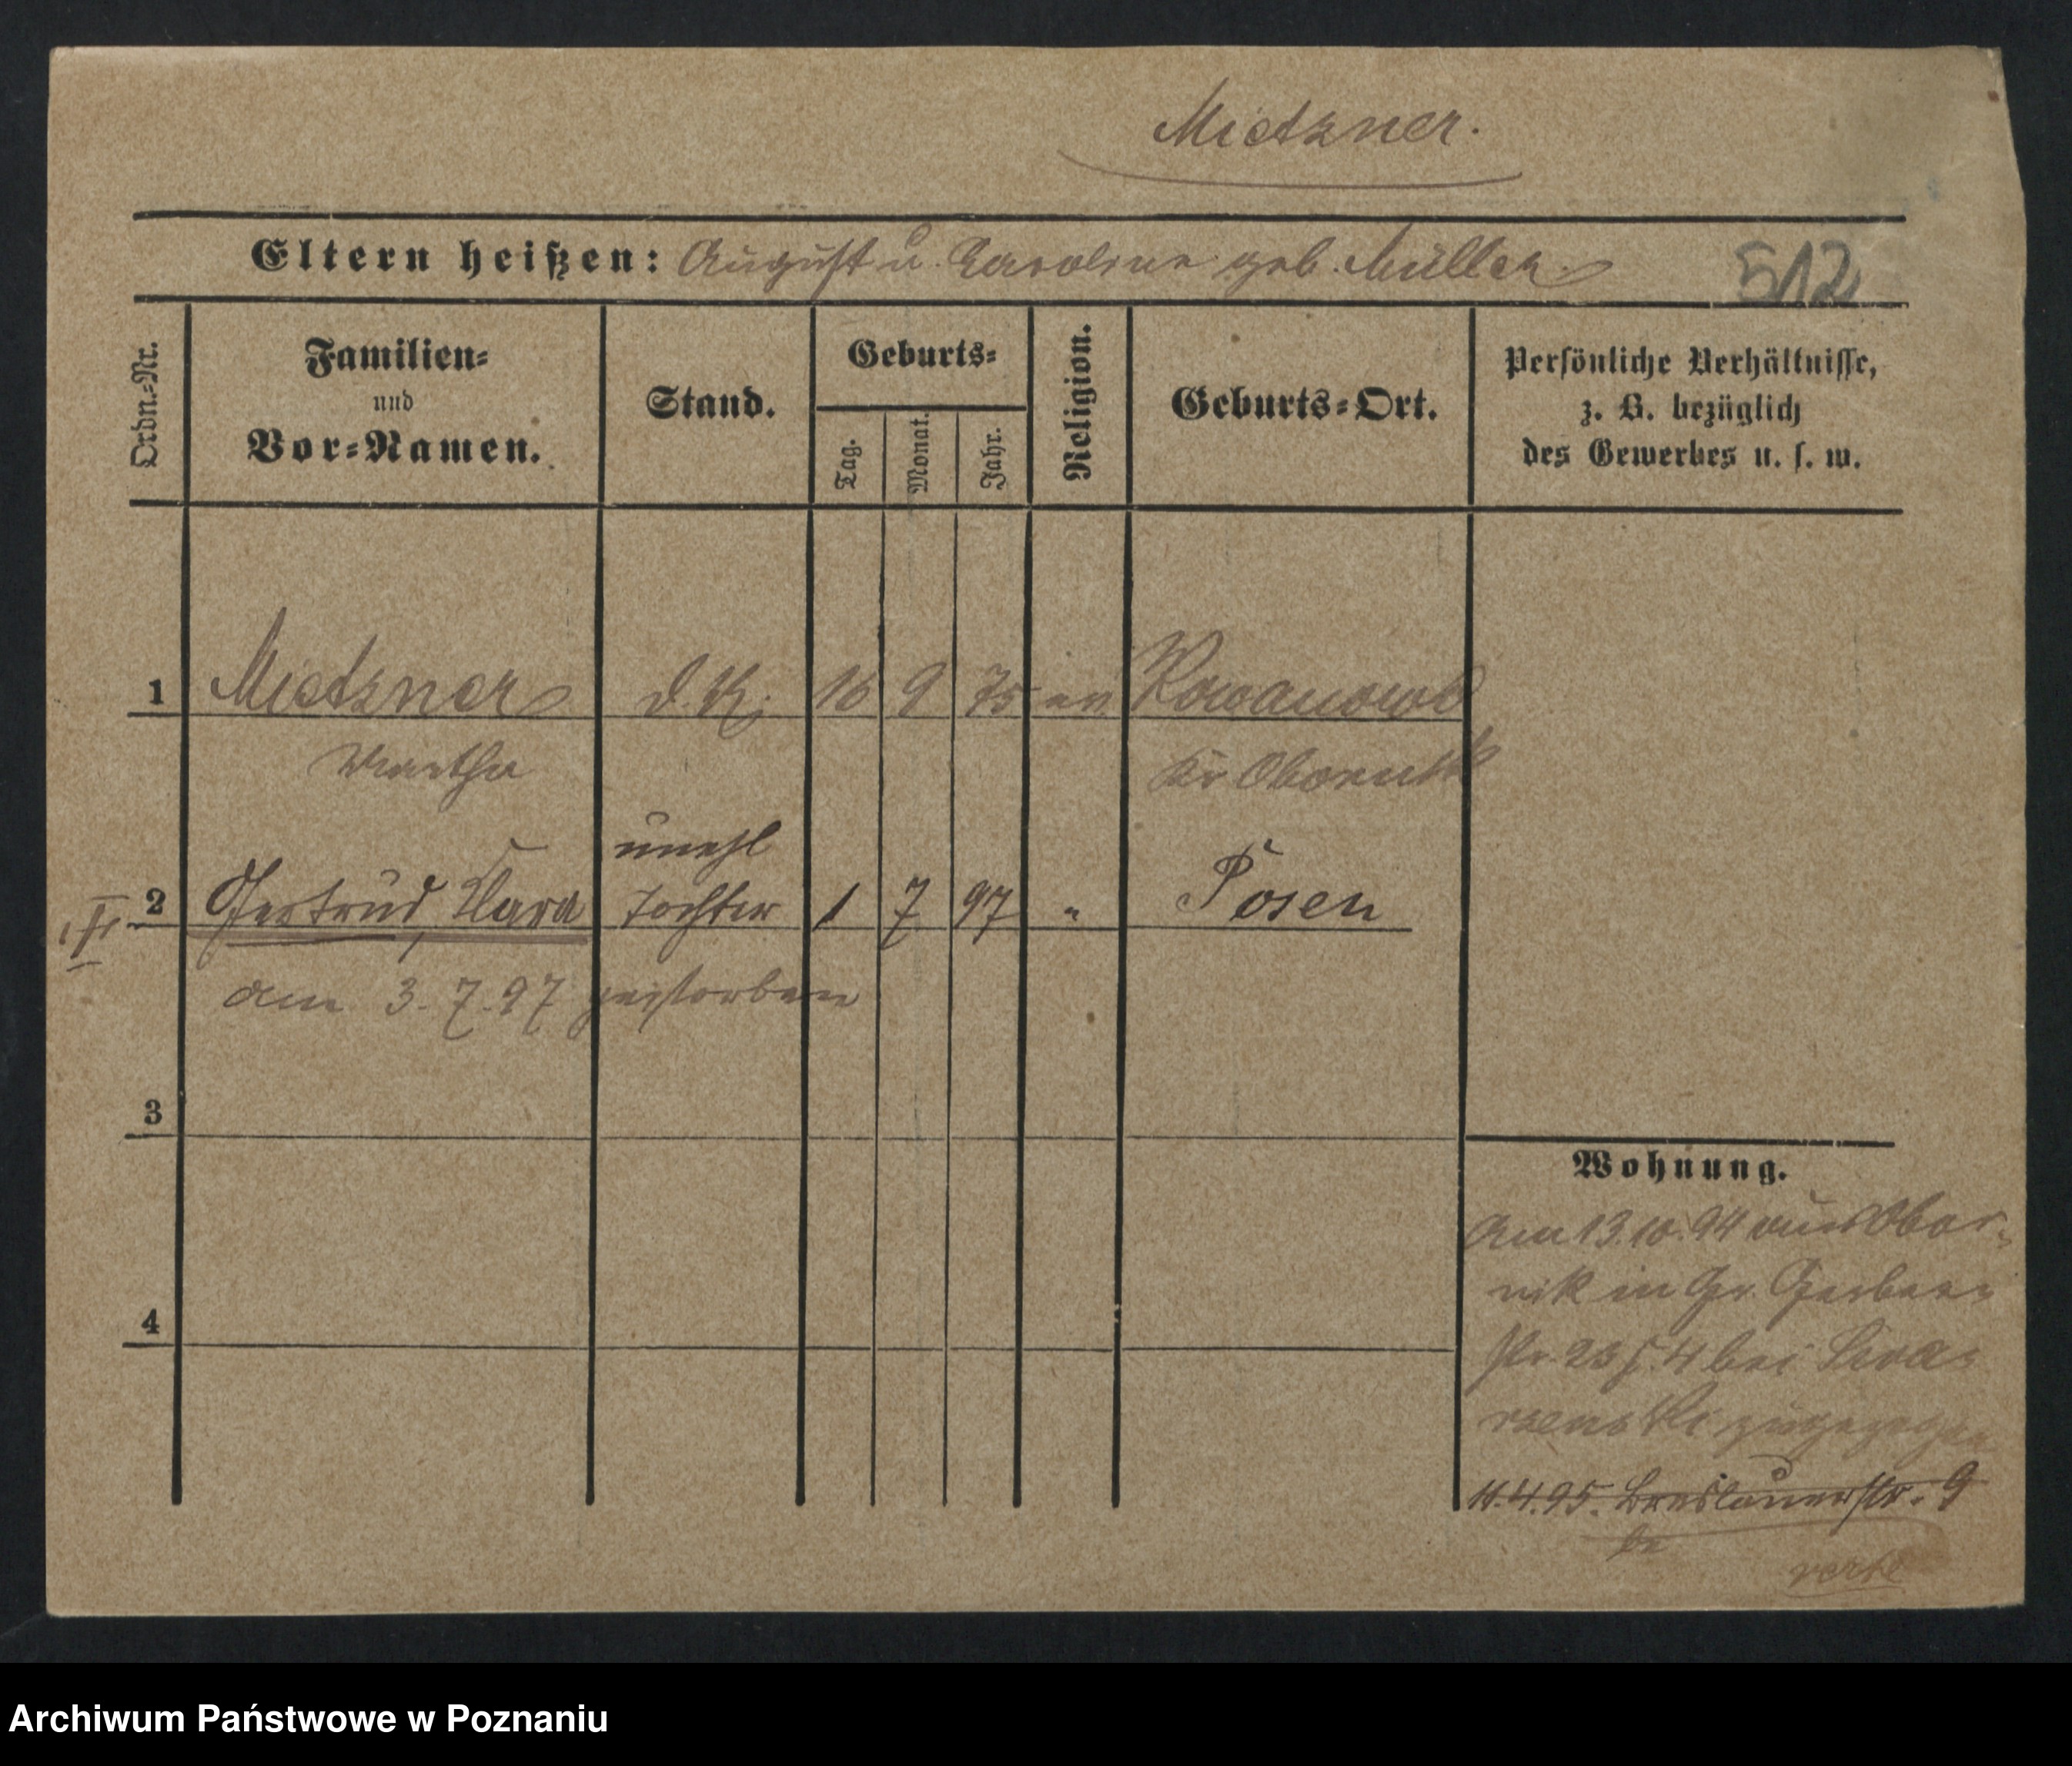 Mietzner.
Eltern heißen: August u. Caroline geb. Müller
512
Ordn.-Nr.
Familien-
und
Vor-Namen.
Stand.
Geburts-
Tag.
Monat.
Jahr.
Religion.
Geburts-Ort.
Persönliche Verhältnisse,
z. B. bezüglich
des Gewerbes u. s. w.
1 Mietzner d. K. 16 9 75 ev
Martha Kr Obornik
unehl
II 2 Gertrud, Klara Tochter 1 7 97 " Posen
am 3. 7. 97 gestorben
3
4
Wohnung.
Am 13.10.94 aus Obor-
nik in Gr. Gerber-
str. 23 bei
zugezogen
11.4.95. Breslauerstr. 9
verte
Archiwum Państwowe w Poznaniu